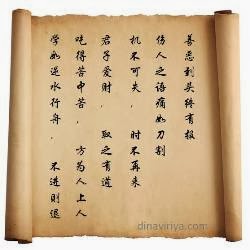 善恶到头终有报
伤人之语痛如刀割
机不可失， 时不再来
君子爱财， 取之有道
吃得苦中苦， 方为人上人
学如逆水行舟， 不进则退
dinaviriya.com